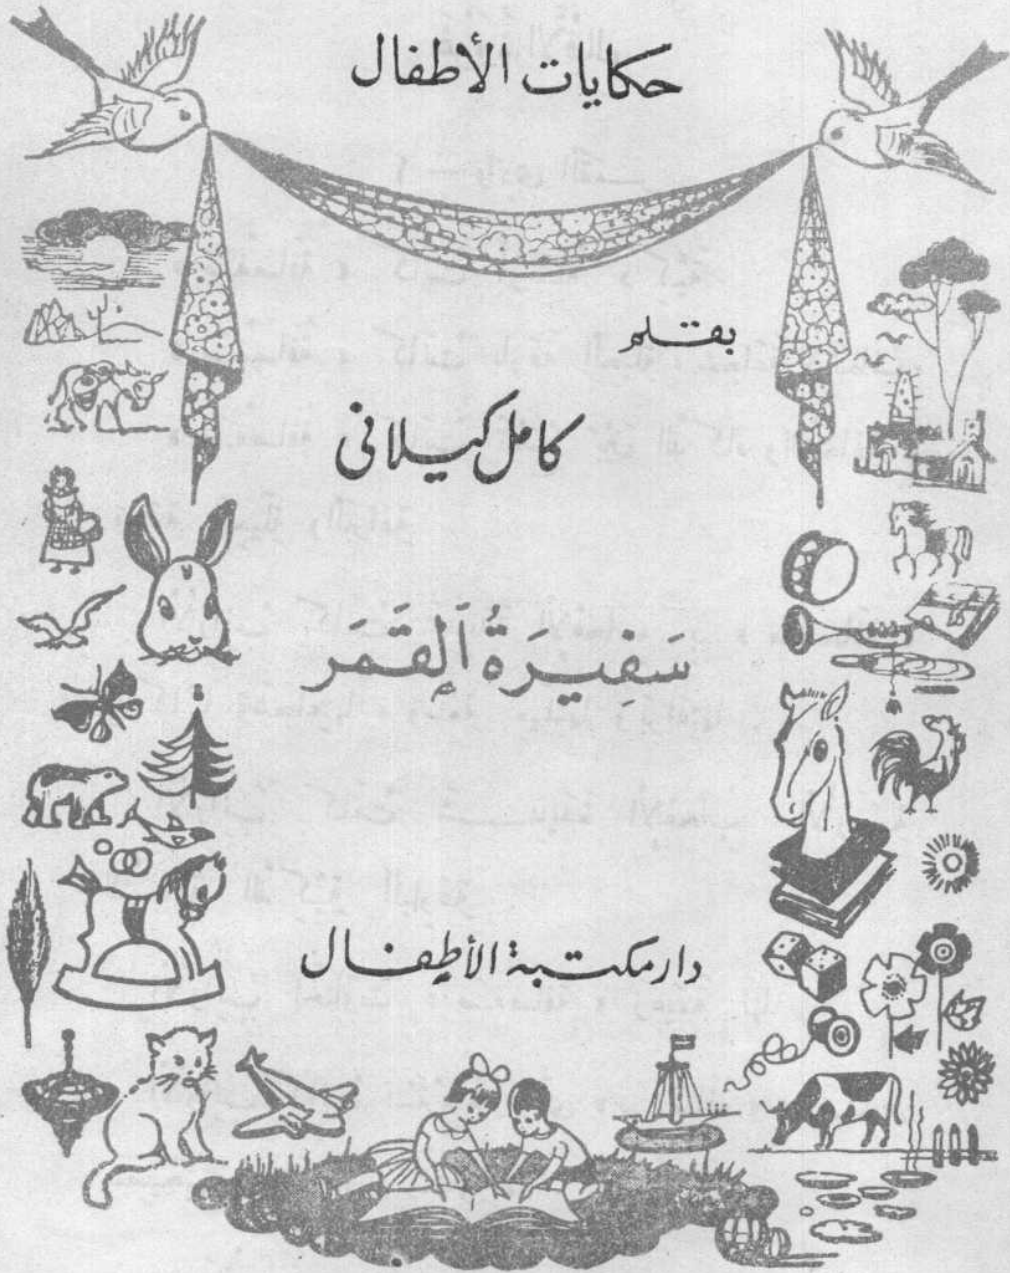 حكايات الأطفال
بقلم
كامل كيلانى
سَفِيرَةُ اَلْقَمَر
دار مكتبة الأطفال